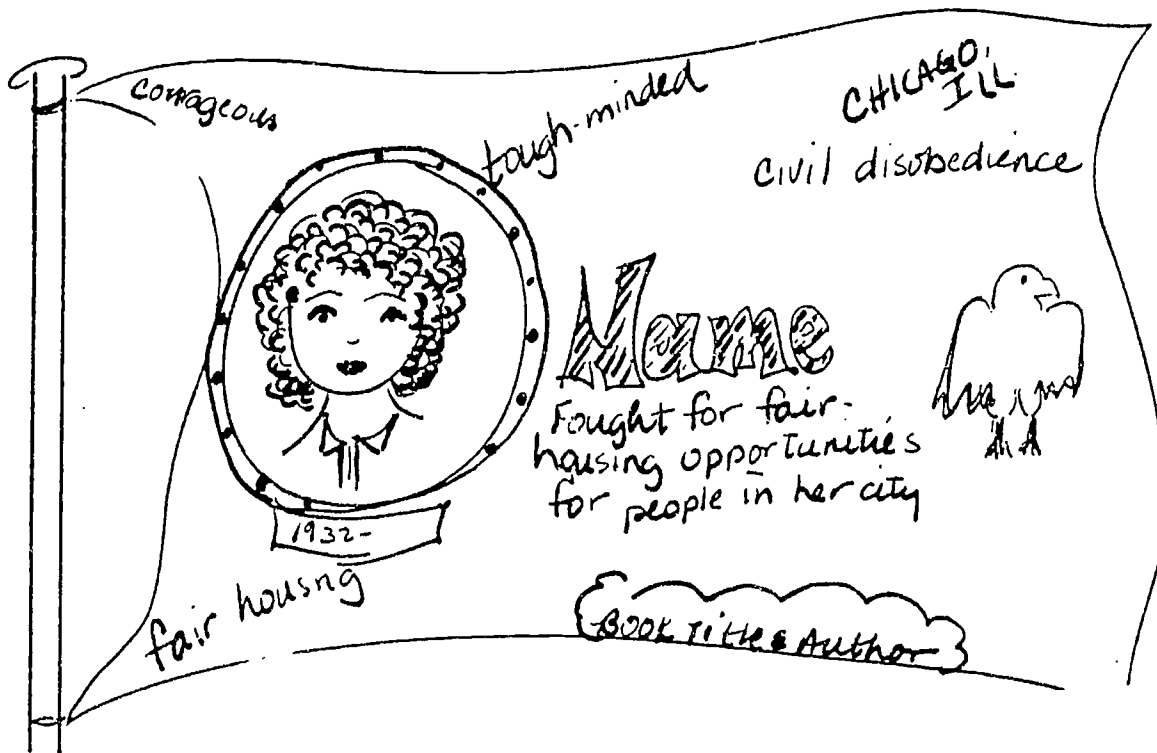 courageous
tough-minded
CHICAGO,
ILL
Civil disobedience
Name
Fought for fair-
housing opportunities
for people in her city
1932-
fair housing
BOOK Title & Author